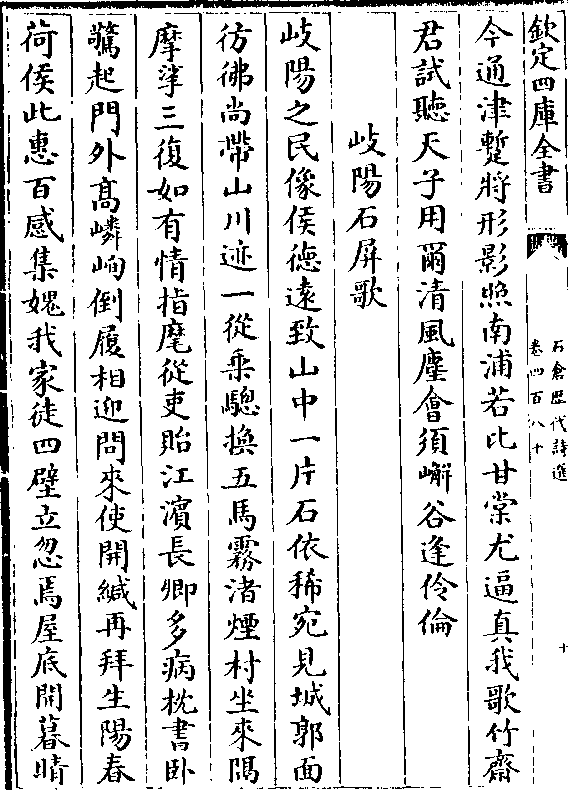 欽定四庫全書
石倉歷代詩選
卷四百八十
十
今通津蹔將形影照南浦若比甘棠尤逼真我歌竹齋
君試聽天子用爾清風塵會須嶰谷逢伶倫
岐陽石屏歌
岐陽之民像侯德遠致山中一片石依稀宛見城郭面
彷彿尚帶山川迹一從乘驄換五馬霧渚煙村坐來隔
摩挲三復如有情指麾從吏貽江濱長卿多病枕書卧
驚起門外髙嶙峋倒履相迎問來使開緘再拜生陽春
荷侯此惠百感集媿我家徒四壁立忽焉屋底開暮晴